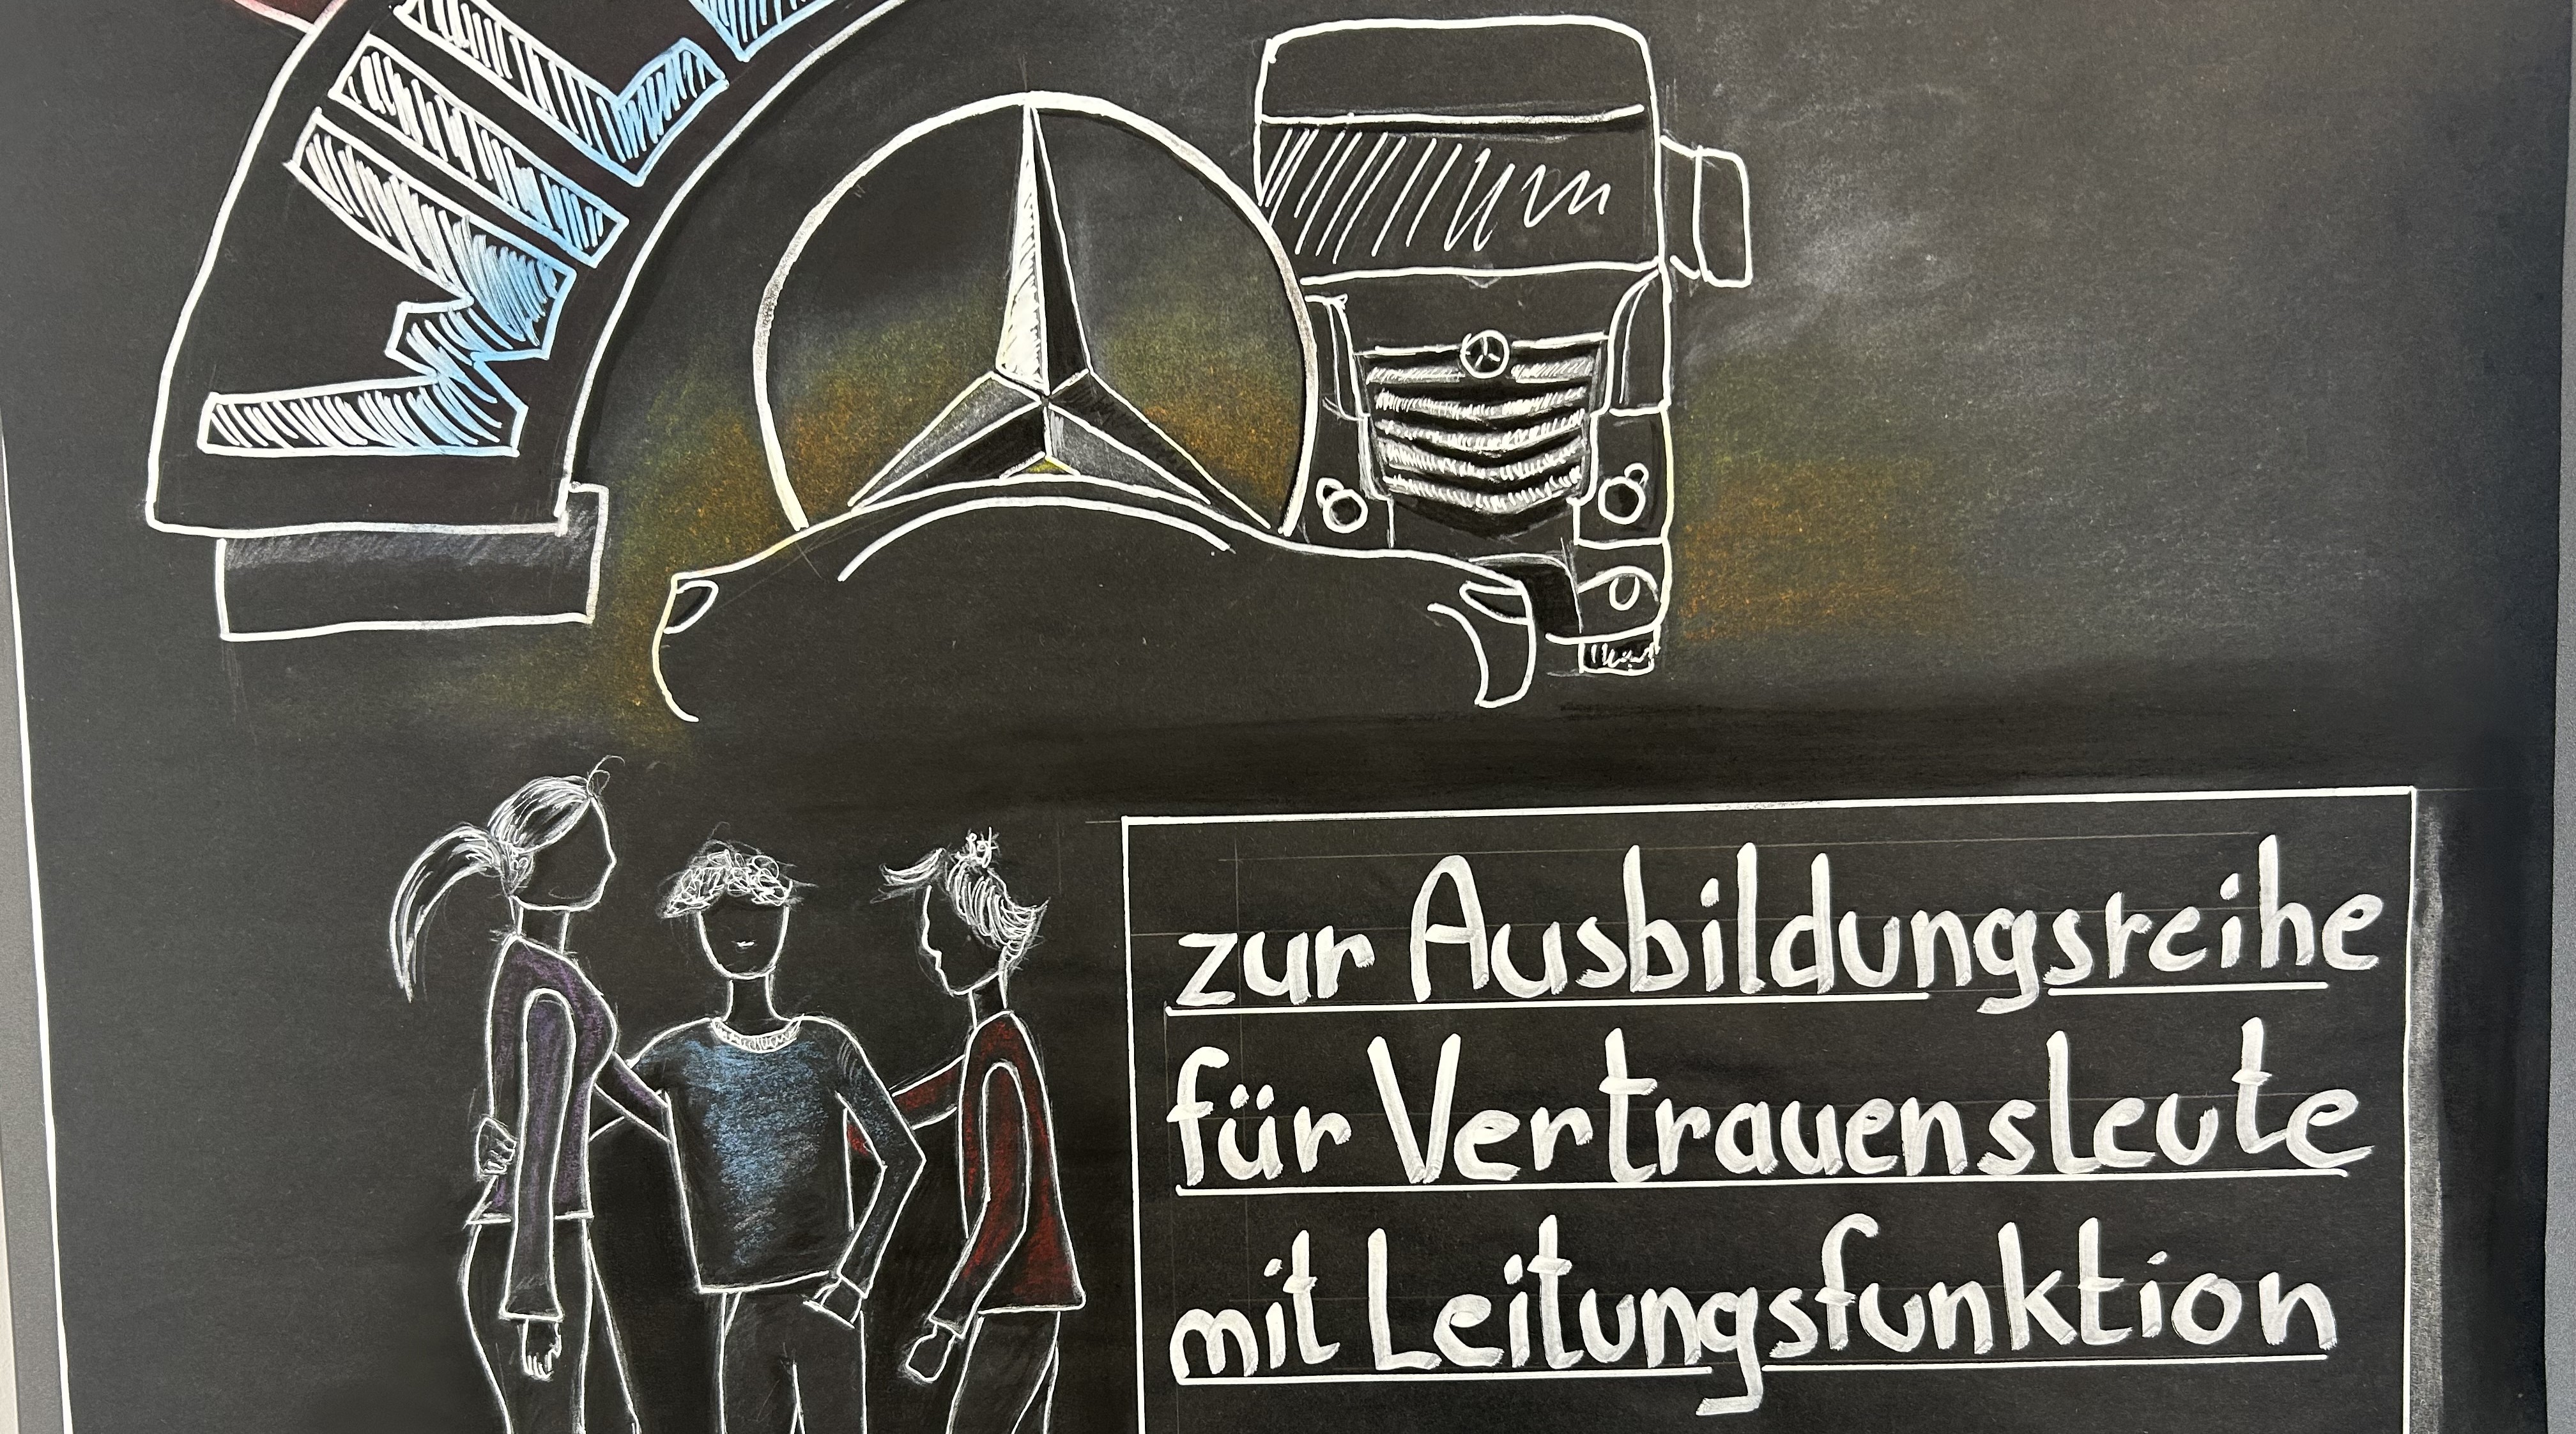 WIL
zur Ausbildungsreihe
für Vertrauensleute
mit Leitungsfunktion